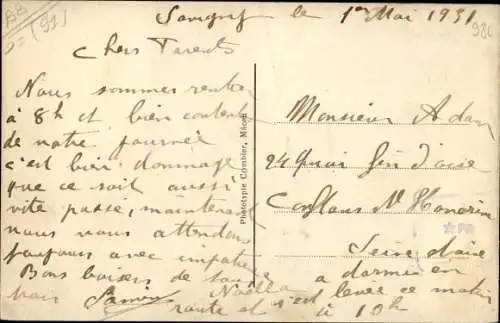 BB
(91)
Savigny le 1er Mai 1931
Chers Parents
Nous sommes rentrer
à 8h et bien contents
de notre journée
c'est bien dommage
que ce soit aussi
vite passé, maintenant
nous vous attendons
toujours avec impatie
Bons baisers de
mais
Phototypie Combier, Mâcon
Monsieur Adam
24 Quai Gén d'oise
Conflans St Honorine
Seine et oise
Noëlla a dormi en
route et s'est levée ce matin
à 10h